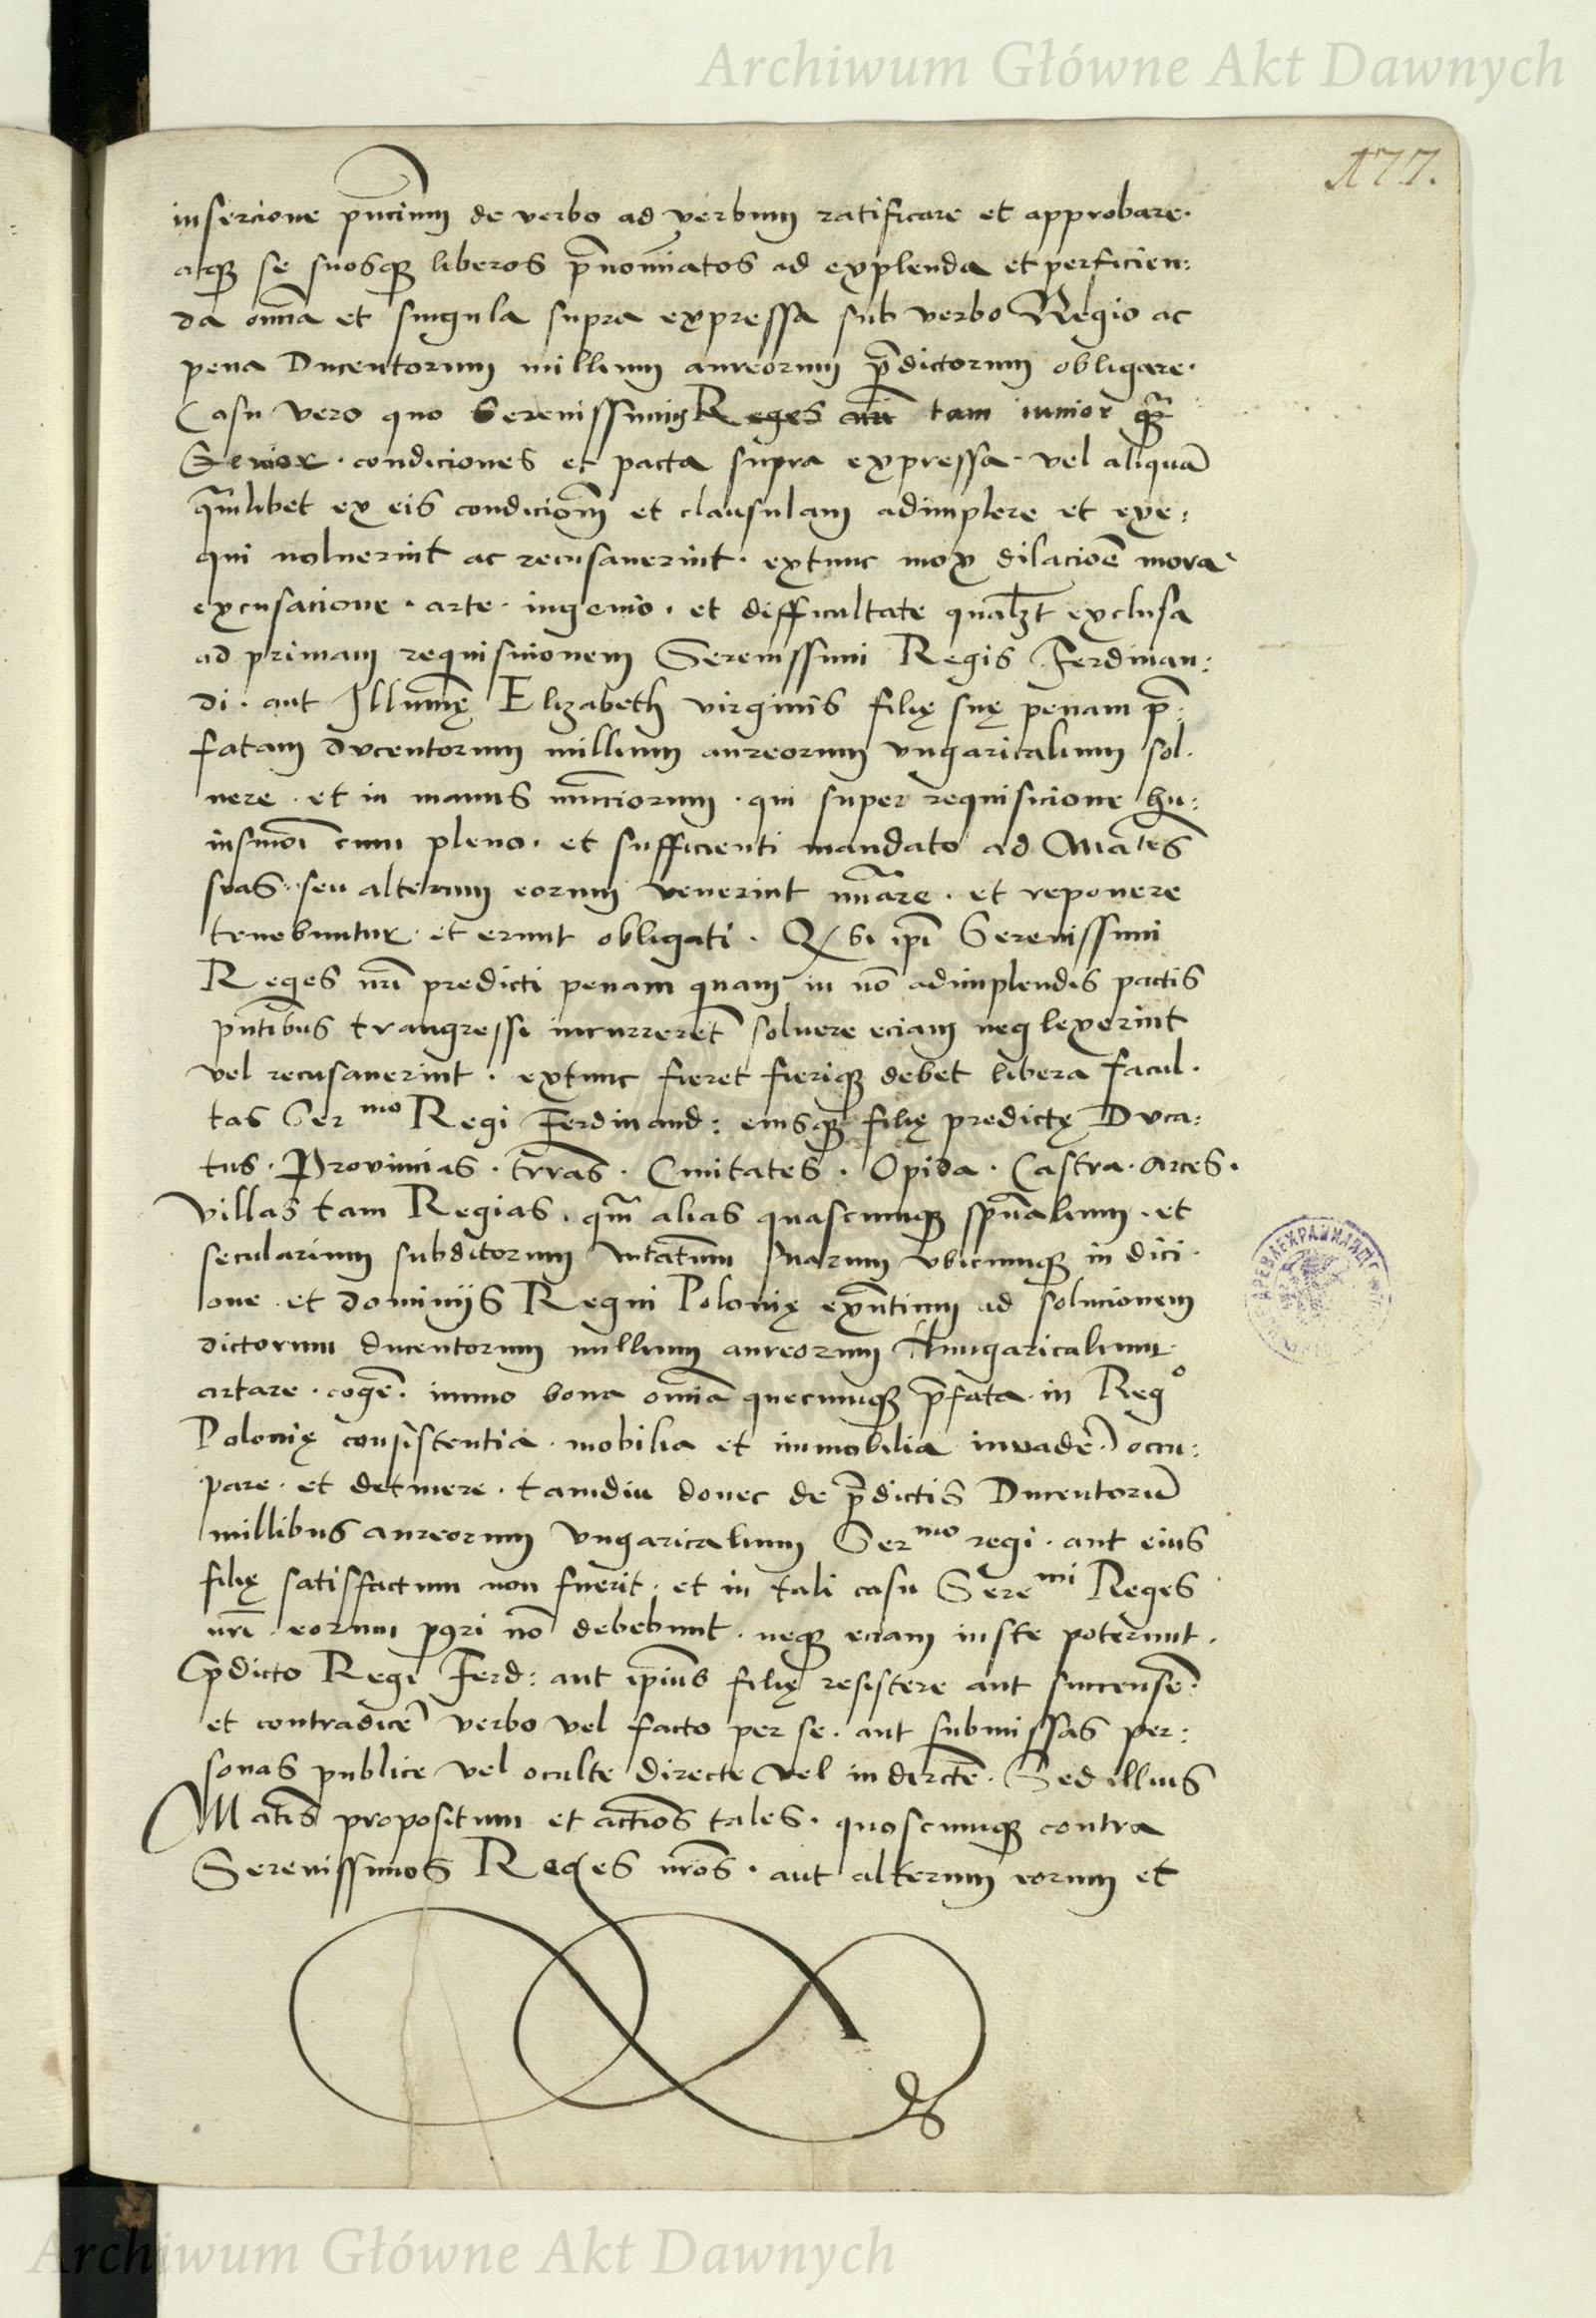 Archiwum Główne Akt Dawnych
177.
insercione pncium de verbo ad verbum ratificare et approbare.
atqꝫ se suosqꝫ liberos p̄nomīatos ad explenda et perficien:
da om̄ia et singula supra expressa sub verbo Regio ac
pena Ducentorum millium aureorum p̄dictorum obligare.
Casu vero quo Serenissimus Reges nri tam iunior qꝫ
Senior. condiciones et pacta supra expressa. vel aliquā
qm̄libet ex eis condicioēm et clausulam adimplere et exe:
qui noluerint ac recusauerint. extunc mox dilacioē mora
excusacione. arte. ingenio. et difficultate qualꝫt exclusa
ad primam requisicionem Serenissimi Regis Ferdinan:
di. aut Illum̄ę Elizabeth virginis filię suę penam p̄:
fatam ducentorum millium aureorum vngaricalium sol.
uere. et in manus nūnciorum. qui super requisicione hu:
iusmōi cum pleno. et sufficienti mandato ad Ma͞tes
suas. seu alterum eorum venerint nūare. et reponere
tenebuntur. et erunt obligati. Q si ip̄i Serenissimi
Reges nr̄i predicti penam quam in nō adimplendis pactis
pn̄tibus trangressi incurrerēt soluere eciam neglexerint
vel recusauerint. extunc fieret fieriqꝫ debet libera facul.
tas Ser mo Regi Ferdinand: eiusqꝫ filię predictę Duca:
tus. Prouincias. trr̄as. Ciuitates. Opida. Castra. Arces.
villas tam Regias. qm̄ alias quascumqꝫ spūalium. et
secularium subditorum M̄tatum suarum vbicumqꝫ in dici.
one. et dominijs Regni Polonię exn̄tium ad solucionem
dictorum ducentorum millium aureorum Hungaricalium
artare. cogē. immo bona om̄ia quecumqꝫ p̄fata. in Reg o
Polonię consistentia. mobilia et immobilia inuadē. occu:
pare. et detinere. tamdiu donec de p̄dictis Ducentorū
millibus aureorum vngaricalium Ser mo regi. aut eius
filię satisfactum non fuerit. et in tali casu Sere mi Reges
nr̄i. eorum p9ri nō debebunt. neqꝫ eciam iuste poterunt.
P̄dicto Regi Ferd: aut ip̄ius filię resistere aut succensē.
et contradicē verbo vel facto per se. aut submissas per:
sonas publice vel oculte directe vel indirctē. Sed illius
Ma͞tis propositum et actiōs tales. quoscumqꝫ contra
Serenissimos Reges nr̄os. aut alterum eorum et
Archiwum Główne Akt Dawnych